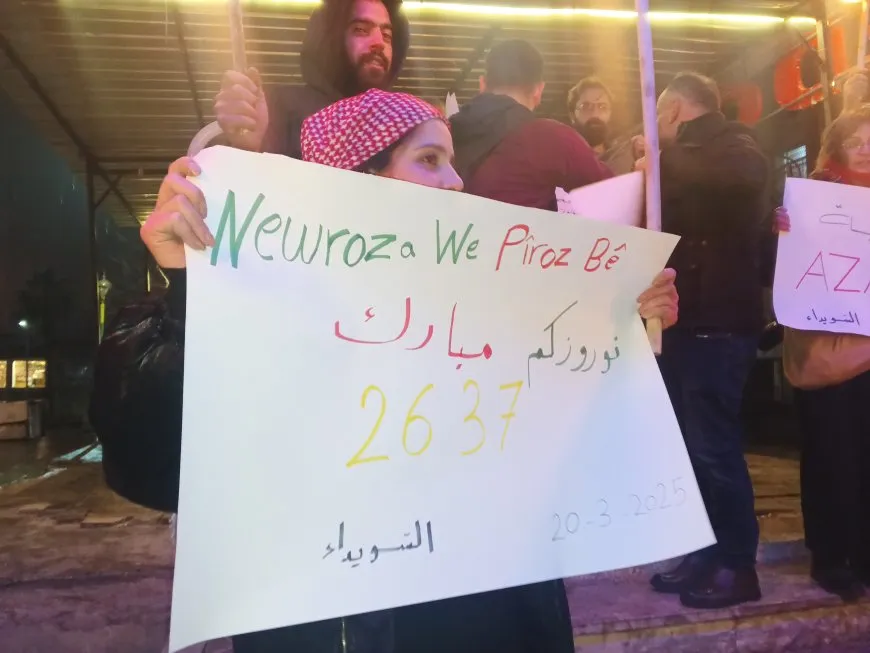 Newroza We Pîroz Bê
نوروزكم مبارك
2637
السويداء
20-3-2025
ية
AZA
السويداء